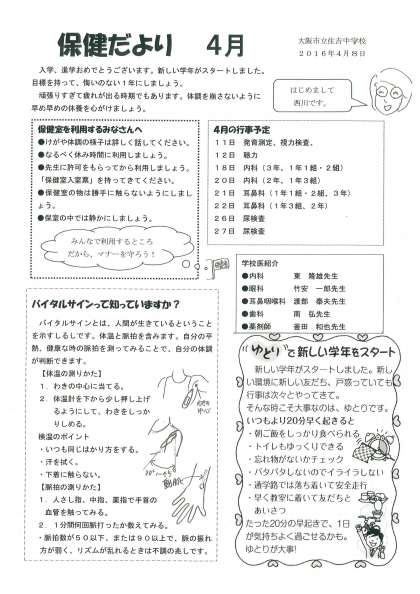 保健だより　4月
大阪市立住吉中学校
2016年4月8日
入学、進学おめでとうございます。新しい学年がスタートしました。
目標を持って、悔いのない1年にしましょう。
頑張りすぎて疲れが出る時期でもあります。体調を崩さないように
早め早めの休養を心がけましょう。
はじめまして
西川です。
保健室を利用するみなさんへ
●けがや体調の様子は詳しく話してください。
●なるべく休み時間に利用しましょう。
●先生に許可をもらってから利用しましょう。
「保健室入室票」を持ってきてください。
●保健室の物は勝手に触らないようにしましょ
う。
●保室の中では静かにしましょう。
みんなで利用するところ
だから、マナーを守ろう！
4月の行事予定
11日　発育測定、視力検査、
12日　聴力
18日　内科（3年、1年1・2組）
20日　内科（2年、1年3組）
21日　耳鼻科（1年1・2組、3年）
22日　耳鼻科（1年3組、2年）
26日　尿検査
27日　尿検査
学校医紹介
●内科　東　隆雄先生
●眼科　竹安　一郎先生
●耳鼻咽喉科　渡部　泰夫先生
●歯科　南　弘先生
●薬剤師　釜田　和也先生
バイタルサインって知っていますか？
バイタルサインとは、人間が生きているということ
を示すしるしです。体温と脈拍を含みます。自分の平
熱、健康な時の脈拍を測ってみることで、自分の体調
が判断できます。
【体温の測りかた】
1．わきの中心に当てる。
2．体温計を下から少し押し上げ
るようにして、わきをしっか
りしめる。
検温のポイント
・いつも同じはかり方をする。
・汗を拭く。
・下着に触らない。
【脈拍の測りかた】
1．人さし指、中指、薬指で手首の
血管を触ってみる。
2．1分間何回脈打ったか数えてみる。
・脈拍数が50以下、または90以上で、脈の振れ
方が弱く、リズムが乱れるときは不調の兆しです。
"ゆとり"で新しい学年をスタート
新しい学年がスタートしました。新し
い環境に新しい友だち、戸惑っていても
行事は次々とやってきて。
そんな時こそ大事なのは、ゆとりです。
いつもより20分早く起きると
・朝ご飯をしっかり食べられる
・トイレもゆっくりできる
・忘れ物がないかチェック
・バタバタしないのでイライラしない
・通学路では落ち着いて安全走行
・早く教室に着いて友だちと
あいさつ
たった20分の早起きで、1日
が気持ちよく過ごせるかも。
ゆとりが大事!